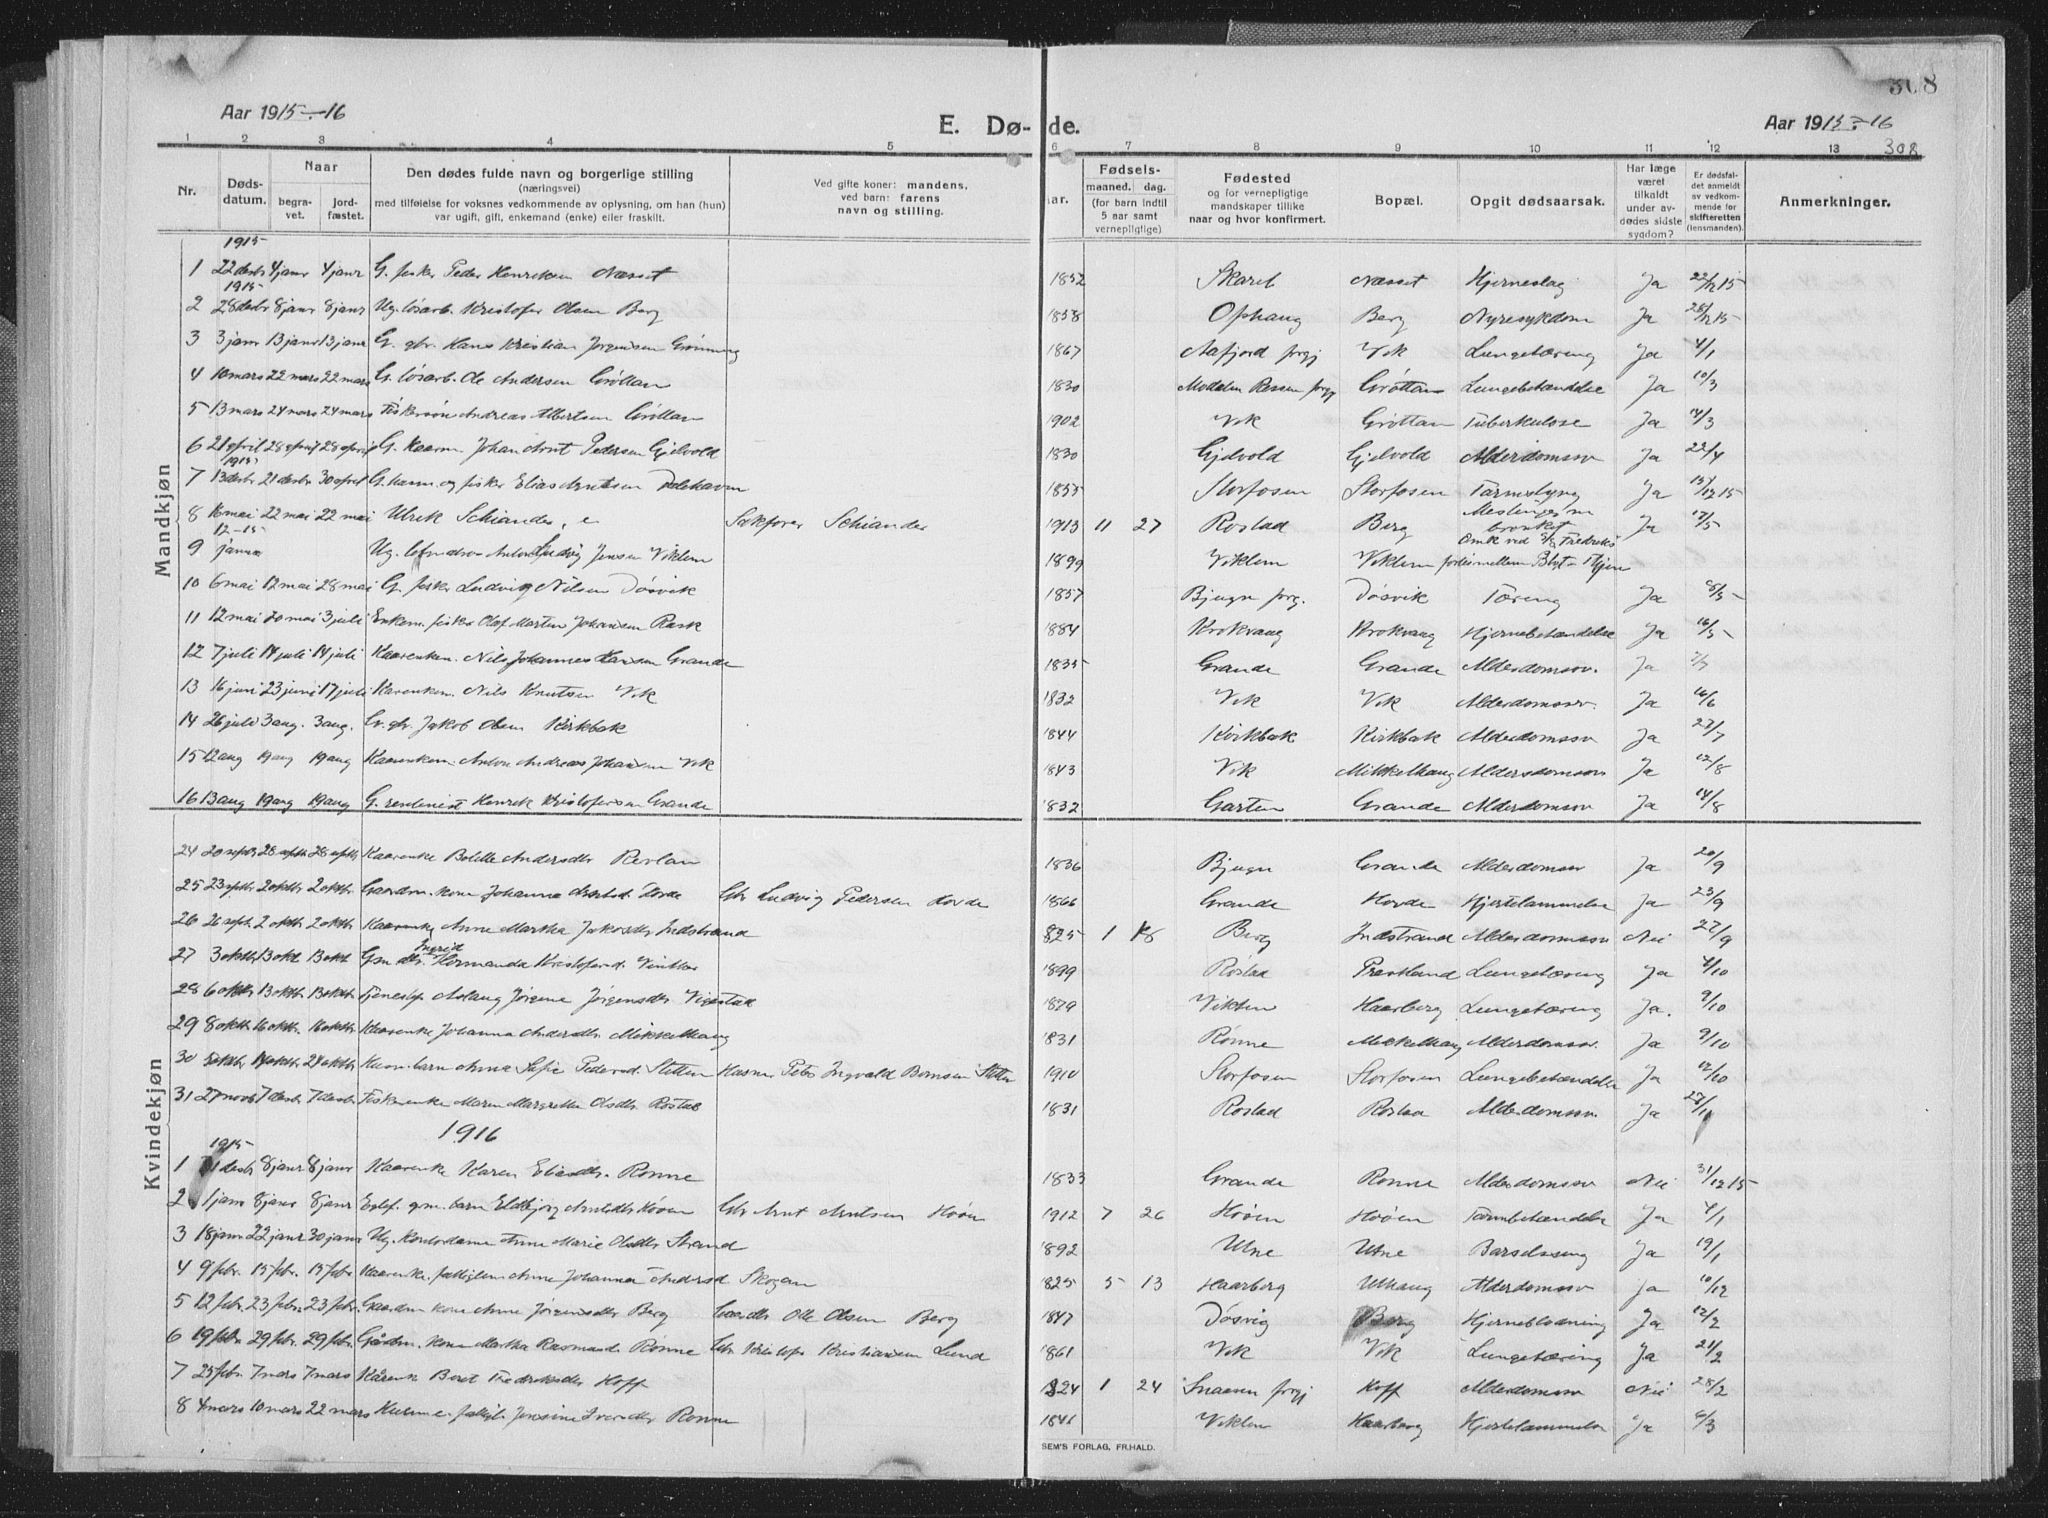 308
Aar 1915-16
E. Dø-
de.
Aar 1915-16
1 2 3 4 5 6 7 8 9 10 11 12 13 308
Nr. Døds-datum. Naar begra-vet. jord-fæstet. Den dødes fulde navn og borgerlige stilling (næringsvei) med tilføielse for voksnes vedkommende av oplysning, om han (hun) var ugift, gift, enkemand (enke) eller fraskilt. Ved gifte koner: mandens, ved barn: farens navn og stilling. ar. Fødsels- maaned. dag. (for barn indtil 5 aar samt vernepligtige) Fødested og for vernepligtige mandskaper tillike naar og hvor konfirmert. Bopæl. Opgit dødsaarsak. Har læge været tilkaldt under av-dødes sidste sygdom? Er dødsfal-det anmeldt av vedkom-mende for skifteretten (lensmanden). Anmerkninger.
Mandkjøn
1915
1 22 desbr 4 janr 4 janr G. fisker Peder Henriksen Næsset 1852 Skaret Næsset Hjerneslag Ja 22/12 15
1915
2 28 desbr 8 janr 8 janr Ug. løsarb. Kristofer Olsen Berg 1858 Ophaug Berg Nyresykdom Ja 28/12 15
3 3 janr 13 janr 13 janr G. gbr. Hans Kristian Jørgensen Grønning 1867 Aafjord prgj Vik Lungetæring Ja 4/1
4 10 mars 22 mars 22 mars G. løsarb. Ole Andersen Grøttan 1830 Grøttan Lungebetændelse Ja 10/3
5 13 mars 24 mars 24 mars Fiskersøn Andreas Albertsen Grøttan 1902 Vik Grøttan Tuberkulose Ja 14/3
6 21 april 28 april 28 april G. Kaarm Johan Arnt Pedersen Gjelvold 1830 Gjelvold Gjelvold Alderdomssv Ja 22/4
1915
7 13 desbr 21 desbr 30 april G. husm. og fisker Elias Arntsen 1855 Storfosen Storfosen Tarmslyng Ja 15/12 15
8 16 mai 22 mai 22 mai Ulrik Schiander Sakfører Schiander 1913 11 27 Rostad Berg Meslinger m bronkit Ja 17/5
12-15
9 janr Ug. Anton Ludvig Jensen Viklem 1899 Viklem Viklem Omk ved Fredriks forlis mellem
10 6 mai 12 mai 28 mai G. fisker Ludvig Nilsen Døsvik 1857 Bjugn prg. Døsvik Tæring Ja 8/5
11 12 mai 20 mai 3 juli Enkem. fisker Olaf Martin Johansen Rask 1884 Krokvaag Krokvaag Hjernebetændelse Ja 16/5
12 7 juli 14 juli 14 juli Kaarenkem. Nils Johannes Hansen Grande 1835 Grande Grande Alderdomssv. Ja 7/7
13 16 juni 23 juni 17 juli Kaarenkem. Nils Knutsen Vik 1832 Vik Vik Alderdomssv. Ja 16/6
14 26 juli 3 aug. 3 aug. G. gbr. Jakob Olsen Kirkbak 1844 Kirkbak Kirkbak Alderdomssv Ja 27/7
15 12 aug 19 aug 19 aug Kaarenkem. Anton Andreas Johansen Vik 1843 Vik Mikkelhaug Alderdomssv Ja 12/8
16 13 aug 19 aug 19 aug G. rentenist Henrik Kristofersen Grande 1832 Garten Grande Alderdomssv Ja 14/8
Kvindekjøn
24 20 septbr 28 septbr 28 septbr Kaarenke Bolette Andersdtr Revlan 1836 Bjugn Grande Alderdomssv Ja 20/9
25 23 septbr 2 oktbr 2 oktbr Gaardm. kone Johanna Arntsd. Hovde Gbr Ludvig Pedersen Hovde 1866 Grande Hovde Hjertelammelse Ja 23/9
26 26 septbr 2 oktbr 2 oktbr Kaarenke Anne Martha Jakobdtr Indstrand 825 1 18 Berg Indstrand Alderdomssv Nei 27/9
27 3 oktbr 13 okt 13 okt Gm dtr. Ingrid Hermanda Kristofersd. 1899 Rostad Præstland Lungetæring Ja 4/10
28 6 oktbr 13 oktbr 13 oktbr Tjenestep. Aslaug Jørgine Jørgensdtr Vigestad 1879 Viklem Haarberg Lungetæring Ja. 9/10
29 8 oktbr 16 oktbr 16 oktbr Kaarenke Johanna Andersdtr Mikkelhaug 1831 Rønne Mikkelhaug Alderdomssv. Ja 9/10
30 5 oktbr 14 oktbr 24 oktbr Husm. barn Anna Sofie Pedersd. Sletten Husm Peter Ingvald Sletten 1910 Storfosen Storfosen Lungebetændelse Ja 12/10
31 27 novbr 7 desbr 7 desbr Fiskerenke Maren Margrethe Olsdtr Rostad 1831 Rostad Rostad Alderdomssv. Ja 28/11
1916
1915
1 31 desbr 8 janr 8 janr Kaarenke Karen Eliasdtr. Rønne 1833 Grande Rønne Alderdomssv Nei 31/12 15
2 1 janr 8 janr 8 janr gm. barn Eldbjørg Arntsdtr Hovn Gbr Arnt Arntsen Hovn 1912 7 26 Hovn Hovn Tarmbetændelse Ja 4/1
3 18 janr 22 janr 30 janr Ug. Kontordame Anne Marie Olsdtr Strand 1892 Utne Utne Barselseng Ja 19/1
4 9 febr. 15 febr. 15 febr Kaarenke Anne Johanna Andersd Skogan 825 5 13 Haarberg Uthaug Alderdomssv Ja 10/12
5 12 febr. 23 febr. 23 febr. Gaardm kone Anne Jørgensdtr Berg Gaardbr Olle Olsen Berg 1847 Døsvig Berg Hjerneblødning Ja 12/2
6 19 febr 29 febr. 29 febr. Gårdm. kone Martha Rasmusd. Rønne Gbr Kristofer Kristiansen Lund 1861 Vik Vik Lungetæring Ja 21/2
7 25 febr. 7 mars 7 mars Kårenk Beret Fredriksdtr Hoff 824 1 24 Snaasen prgj Hoff Alderdomssv Nei 28/2
8 4 mars 10 mars 22 mars Jensine Iversdtr Rønne 1841 Viklem Haarberg Hjertelammelse Ja 6/3
SEM'S FORLAG, FR.HALD.